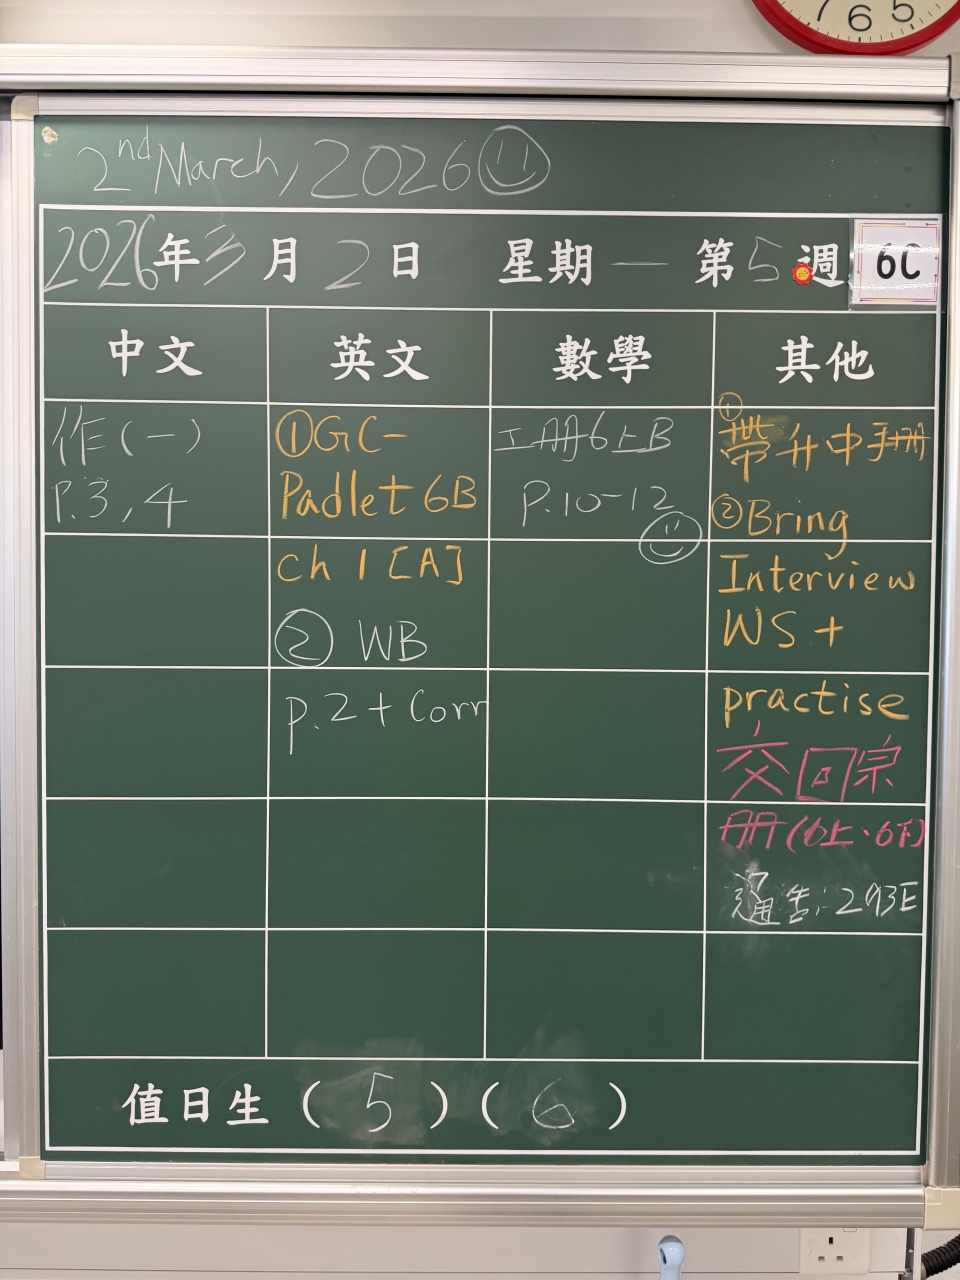 7 6 5
2nd March, 2026
2026年3月2日 星期一 第5週 6C
中文 英文 數學 其他
作(一)
P.3, 4
①GC-
Padlet 6B
ch 1 [A]
② WB
p.2 + Corr
工册6上B
P.10-12
①
帶升中手册
②Bring
Interview
WS +
practise
交回宗
册(6上、6下)
通告: 293E
值日生 ( 5 ) ( 6 )